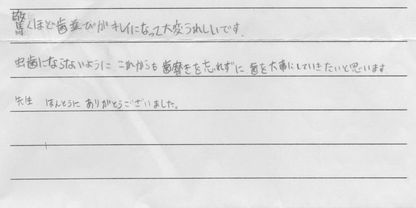 驚くほど歯並びがキレイになって大変うれしいです。
虫歯にならないように これからも歯磨きを忘れずに 歯を大事にしていきたいと思います
先生 ほんとうに ありがとうございました。